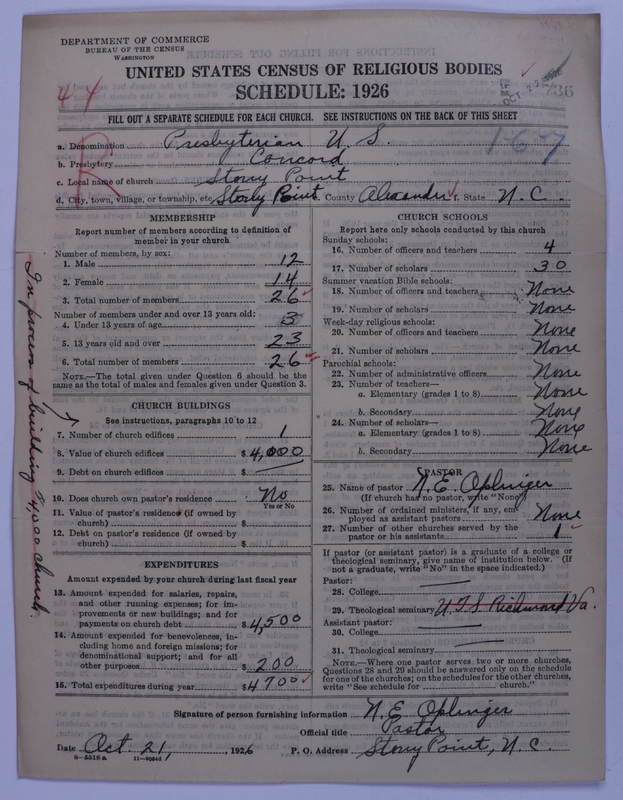 DEPARTMENT OF COMMERCE
BUREAU OF THE CENSUS
WASHINGTON
UNITED STATES CENSUS OF RELIGIOUS BODIES
SCHEDULE: 1926
44
736
FILL OUT A SEPARATE SCHEDULE FOR EACH CHURCH. SEE INSTRUCTIONS ON THE BACK OF THIS SHEET
R
167
a. Denomination Presbyterian U S.
b. Presbytery Concord
c. Local name of church Stony Point
d. City, town, village, or township, etc. Stony Point County Alexander f. State N. C.
MEMBERSHIP
Report number of members according to definition of
member in your church
Number of members, by sex:
1. Male 12
2. Female 14
3. Total number of members 26
Number of members under and over 13 years old:
4. Under 13 years of age 3
5. 13 years old and over 23
6. Total number of members 26
NOTE.—The total given under Question 6 should be the
same as the total of males and females given under Question 3.
CHURCH BUILDINGS
See instructions, paragraphs 10 to 12
7. Number of church edifices 1
8. Value of church edifices $4,000
9. Debt on church edifices $
10. Does church own pastor's residence No
Yes or No
11. Value of pastor's residence (if owned by
church) $
12. Debt on pastor's residence (if owned by
church) $
EXPENDITURES
Amount expended by your church during last fiscal year
13. Amount expended for salaries, repairs,
and other running expenses; for im-
provements or new buildings; and for
payments on church debt $4,500
14. Amount expended for benevolences, in-
cluding home and foreign missions; for
denominational support; and for all
other purposes $200
15. Total expenditures during year $4700
In process of building $4,000 church.
CHURCH SCHOOLS
Report here only schools conducted by this church
Sunday schools:
16. Number of officers and teachers 4
17. Number of scholars 30
Summer vacation Bible schools:
18. Number of officers and teachers None
19. Number of scholars None
Week-day religious schools:
20. Number of officers and teachers None
21. Number of scholars None
Parochial schools:
22. Number of administrative officers None
23. Number of teachers—
a. Elementary (grades 1 to 8) None
b. Secondary None
24. Number of scholars—
a. Elementary (grades 1 to 8) None
b. Secondary None
PASTOR
25. Name of pastor N. E. Oplinger
(If church has no pastor, write "None")
26. Number of ordained ministers, if any, em-
ployed as assistant pastors None
27. Number of other churches served by the
pastor or his assistants 1
If pastor (or assistant pastor) is a graduate of a college or
theological seminary, give name of institution below. (If
not a graduate, write "No" in the space indicated.)
Pastor:
28. College
29. Theological seminary U. T. S. Richmond Va.
Assistant pastor:
30. College
31. Theological seminary
NOTE.—Where one pastor serves two or more churches,
Questions 28 and 29 should be answered only on the schedule
for one of the churches; on the schedules for the other churches,
write "See schedule for church."
Signature of person furnishing information N. E. Oplinger
Official title Pastor
Date Oct. 21, 1926 P. O. Address Stony Point, N. C.
8—5518a 11—9084d